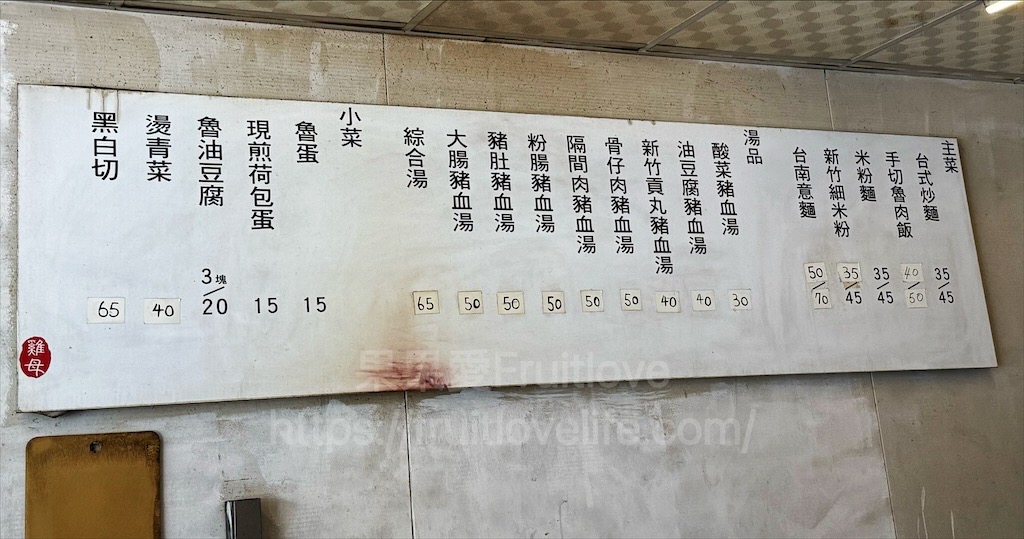 主菜
台式炒麵 35/45
手切魯肉飯 40/50
米粉麵 35/45
新竹細米粉 35/45
台南意麵 50/70
湯品
酸菜豬血湯 30
油豆腐豬血湯 40
新竹貢丸豬血湯 40
骨仔肉豬血湯 50
隔間肉豬血湯 50
粉腸豬血湯 50
豬肚豬血湯 50
大腸豬血湯 50
綜合湯 65
小菜
魯蛋 15
現煎荷包蛋 15
魯油豆腐 3塊/20
燙青菜 40
黑白切 65
雞母
Fruitlove
https://fruitlovelife.com/